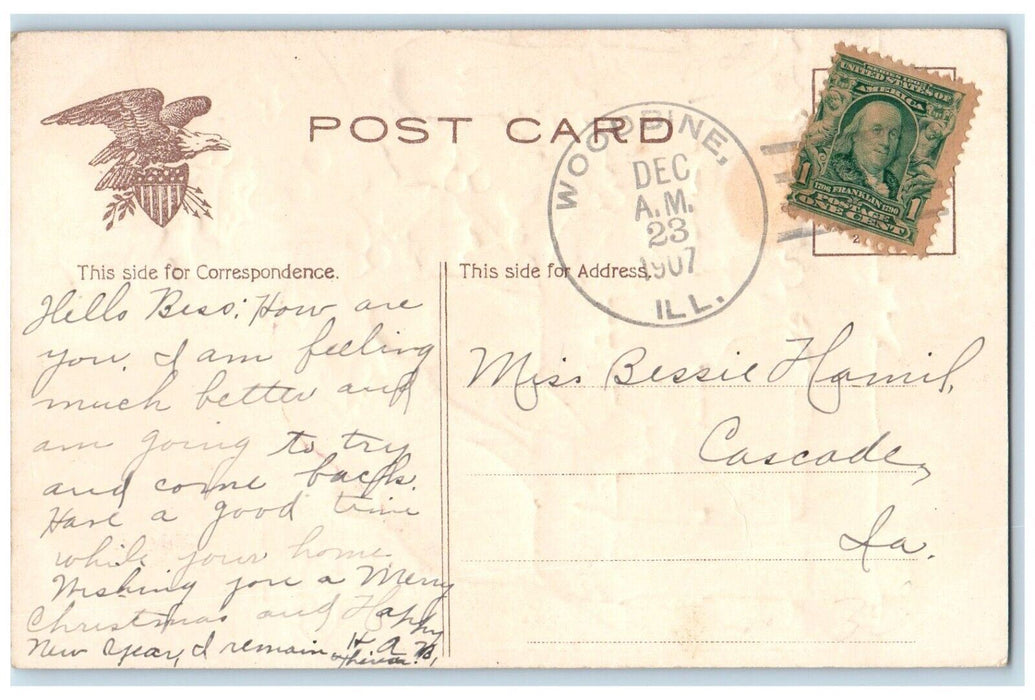 POST CARD
WOODBINE,
DEC
A.M.
23
1907
ILL.
SERIES 1902
UNITED STATES OF
AMERICA
1 1
1706 FRANKLIN 1790
POSTAGE
ONE CENT
2
This side for Correspondence.
Hello Bess; How are
you. I am feeling
much better and
am going to try
and come back.
Have a good time
while your home
Wishing you a Merry
Christmas and Happy
New Year, I remain H. A. B,
This side for Address.
Miss Bessie Hamil,
Cascade,
Ia.